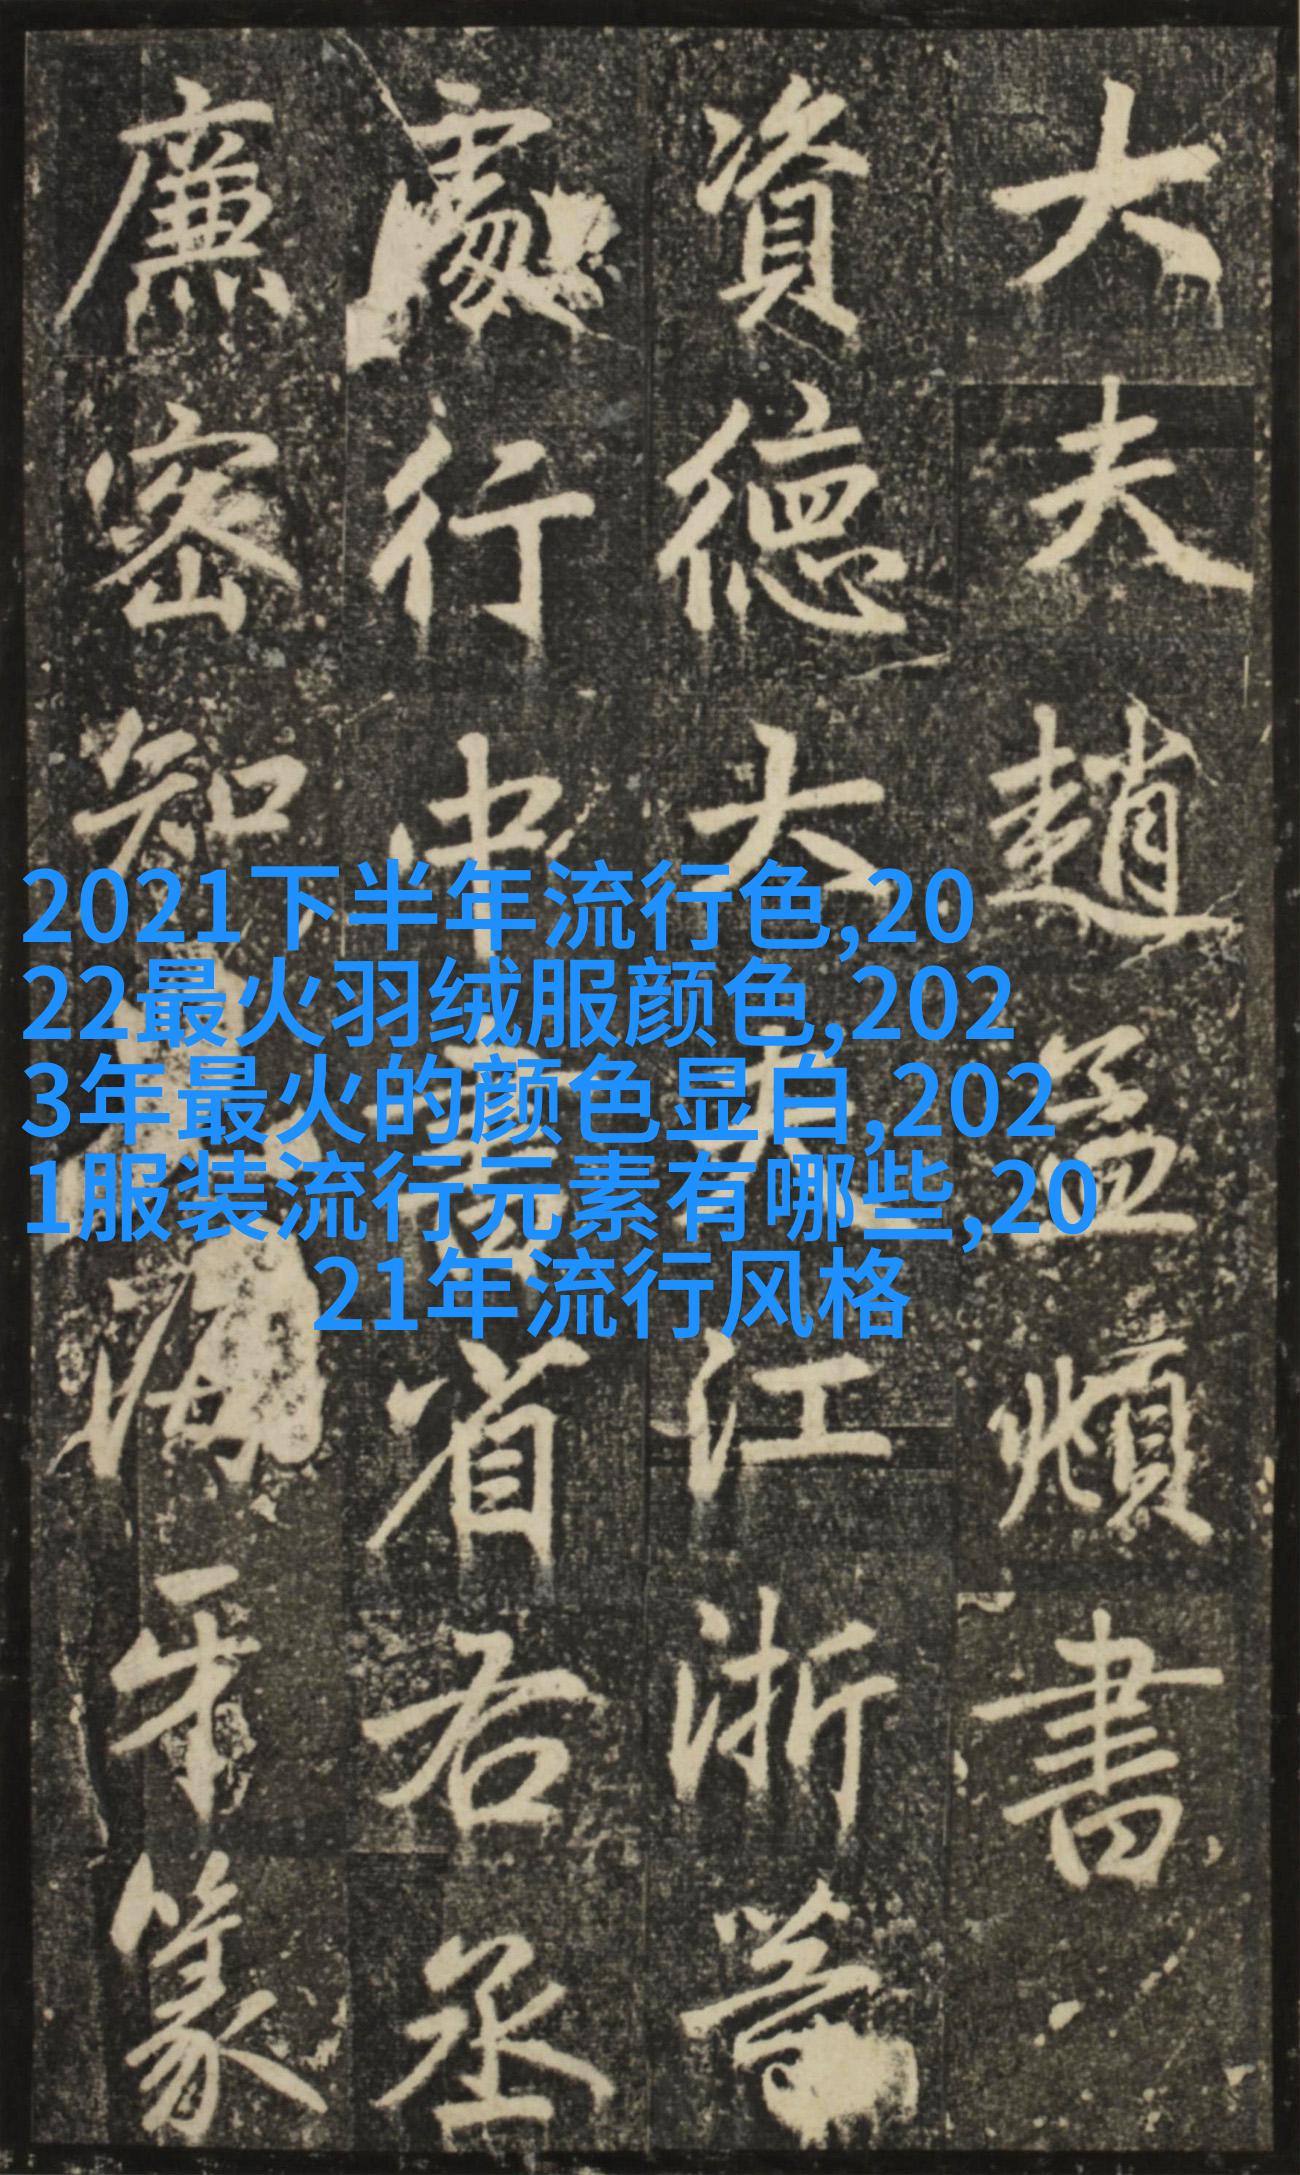 大夫趙孟頫書
資德大夫江浙等
處行中書省右丞
廉密知海牙篆
2021下半年流行色,20
22最火羽绒服颜色,202
3年最火的颜色显白,202
1服装流行元素有哪些,20
21年流行风格